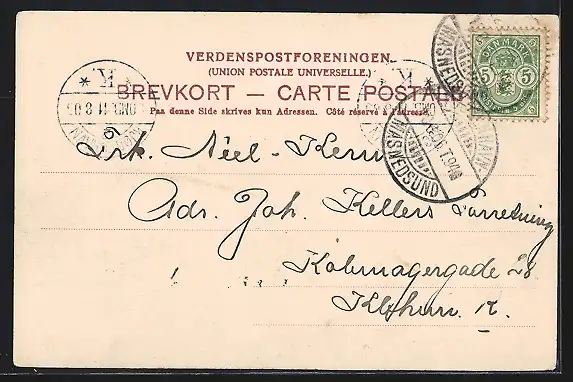 VERDENSPOSTFORENINGEN.
(UNION POSTALE UNIVERSELLE.)
BREVKORT — CARTE POSTALE
Paa denne Side skrives kun Adressen. Côté réservé à l'adresse.
DANMARK
5 5
K.
K.
MASNEDSUND
MASNEDSUND
Frk. Niel-
Adr. Joh. Kellers Forretning
Købmagergade 28
Kbhvn. K.